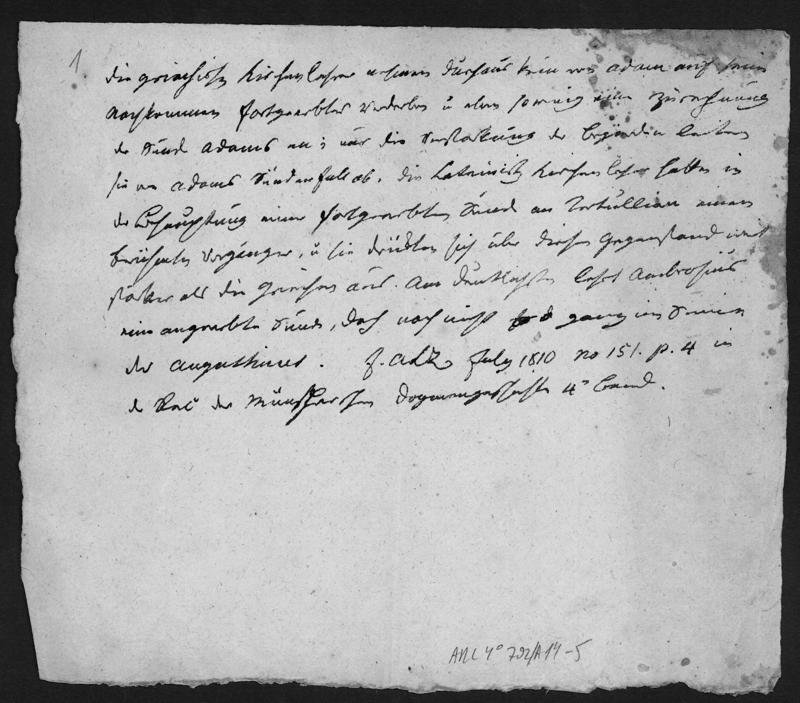 1
die griechischen Kirchenlehrer nehmen durchaus kein von Adam auf seine
Nachkommen fortgeerbtes Verderben u eben so wenig eine Zurechnung
der Sünde Adams an; nur die Verstärkung der Begierden leiten
sie von Adams Sündenfall ab. die Lateinischen Kirchenlehrer hatten in
der Behauptung einer fortgeerbten Sünde an Tertullian einen
berühmten Vorgänger, u sie drückten sich über diesen Gegenstand weit
stärker als die Griechen aus. Am deutlichsten lehrt Ambrosius
eine angeerbte Sünde, doch noch nicht ganz im Sinne
des Augustinus. f. ALZ July 1810 no 151. p. 4 in
der Rec der Münscherschen Dogmengeschichte 4r Band.
ABL 4° 702/A14-5